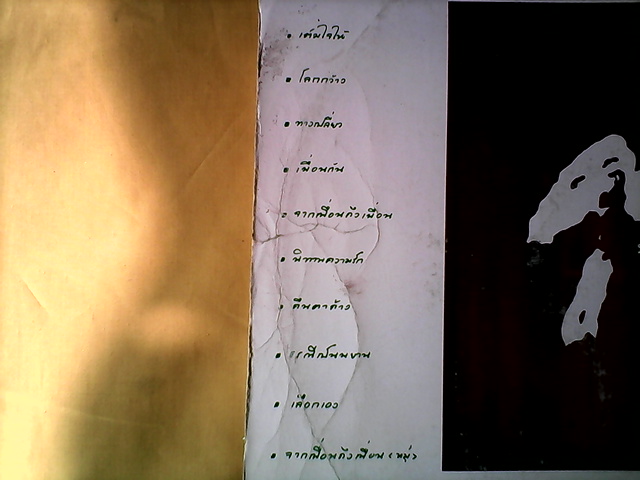 เต็มใจให้
โลกกว้าง
ทางเปลี่ยว
เพื่อนกัน
จากเพื่อนถึงเพื่อน
นิทานความรัก
คืนดาค้าง
ธรณีเป็นพยาน
เลือกเอง
จากเพื่อนถึงเพื่อน (หมู่)